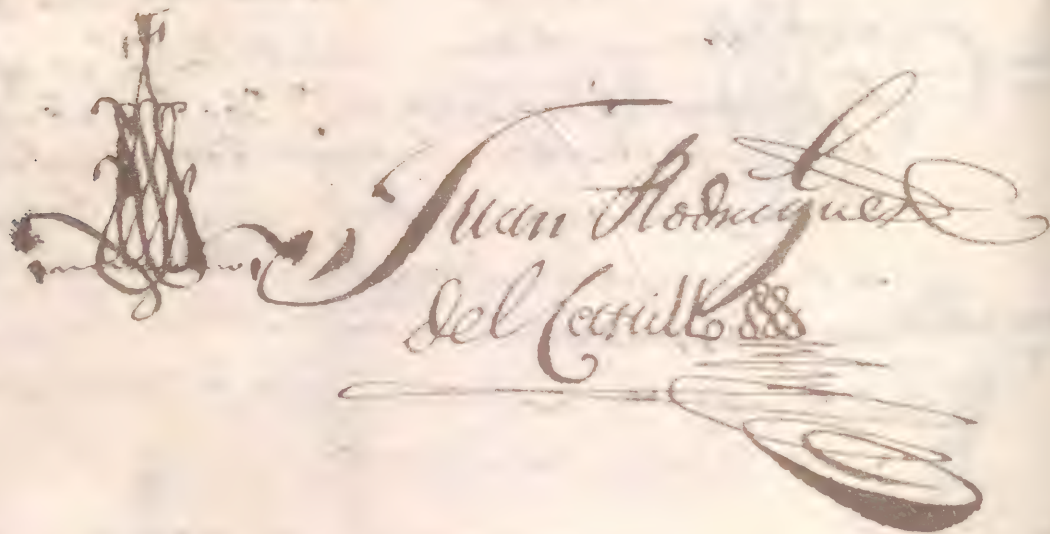 Juan Rodriguez
del Cerrillo